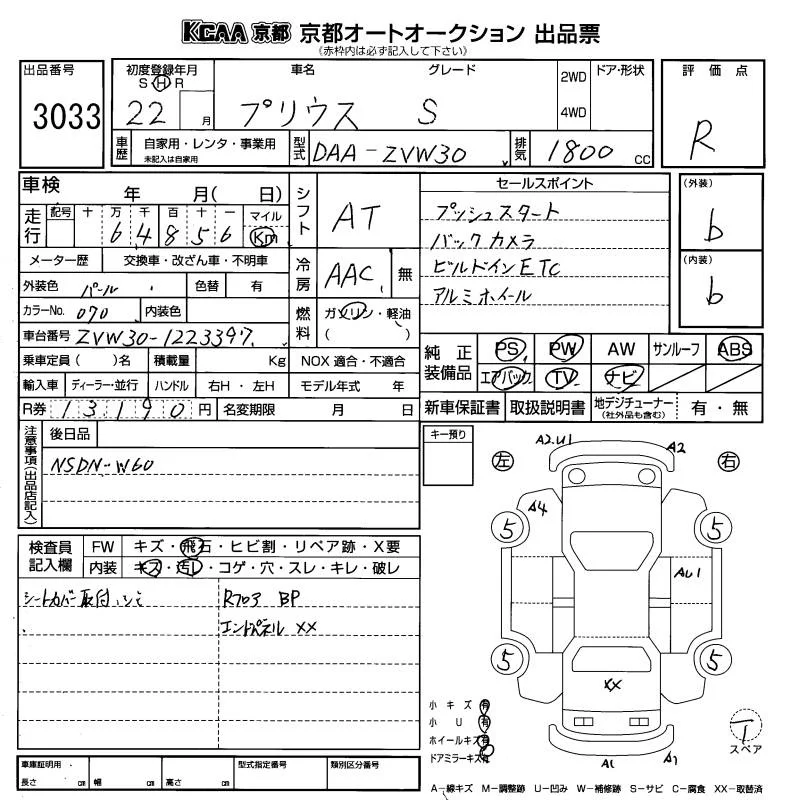 KCAA 京都 京都オートオークション 出品票
(赤枠内は必ず記入して下さい)
出品番号
3033
初度登録年月
S H R
22 月
車名 グレード
プリウス S
2WD
4WD
ドア・形状
評価点
R
車歴
自家用・レンタ・事業用
未記入は自家用
型式
DAA-ZVW30
排気
1800 cc
車検 年 月( 日)
走行
記号 十 万 千 百 十 一 マイル
6 4 8 5 6 Km
メーター歴 交換車・改ざん車・不明車
外装色 パール 色替 有
カラーNo. 070 内装色
車台番号 ZVW30-1223397
乗車定員 ( )名 積載量 Kg
輸入車 ディーラー・並行 ハンドル 右H・左H
R券 13190円 名変期限 月 日
シフト
AT
冷房
AAC 無
燃料
ガソリン・軽油
( )
NOX 適合・不適合
モデル年式 年
セールスポイント
プッシュスタート
バックカメラ
ビルドインETC
アルミホイール
(外装)
b
(内装)
b
純正装備品
PS PW AW サンルーフ ABS
エアバック TV ナビ
新車保証書 取扱説明書 地デジチューナー (社外品も含む) 有・無
注意事項(出品店記入)
後日品
NSDN-W60
キー預り
検査員記入欄
FW キズ・飛石・ヒビ割・リペア跡・X要
内装 キズ・汚レ・コゲ・穴・スレ・キレ・破レ
シートカバー取付
R703 BP
エンドパネル XX
左 右
A2.U1 A2
A4
5 5
AU1
5 5
XX
A1 A1
小キズ 有
小U 有
ホイールキズ 有
ドアミラーキズ 有
T
スペア
車庫証明用
長さ cm 幅 cm 高さ cm
型式指定番号 類別区分番号
A-線キズ M-調整跡 U-凹み W-補修跡 S-サビ C-腐食 XX-取替済